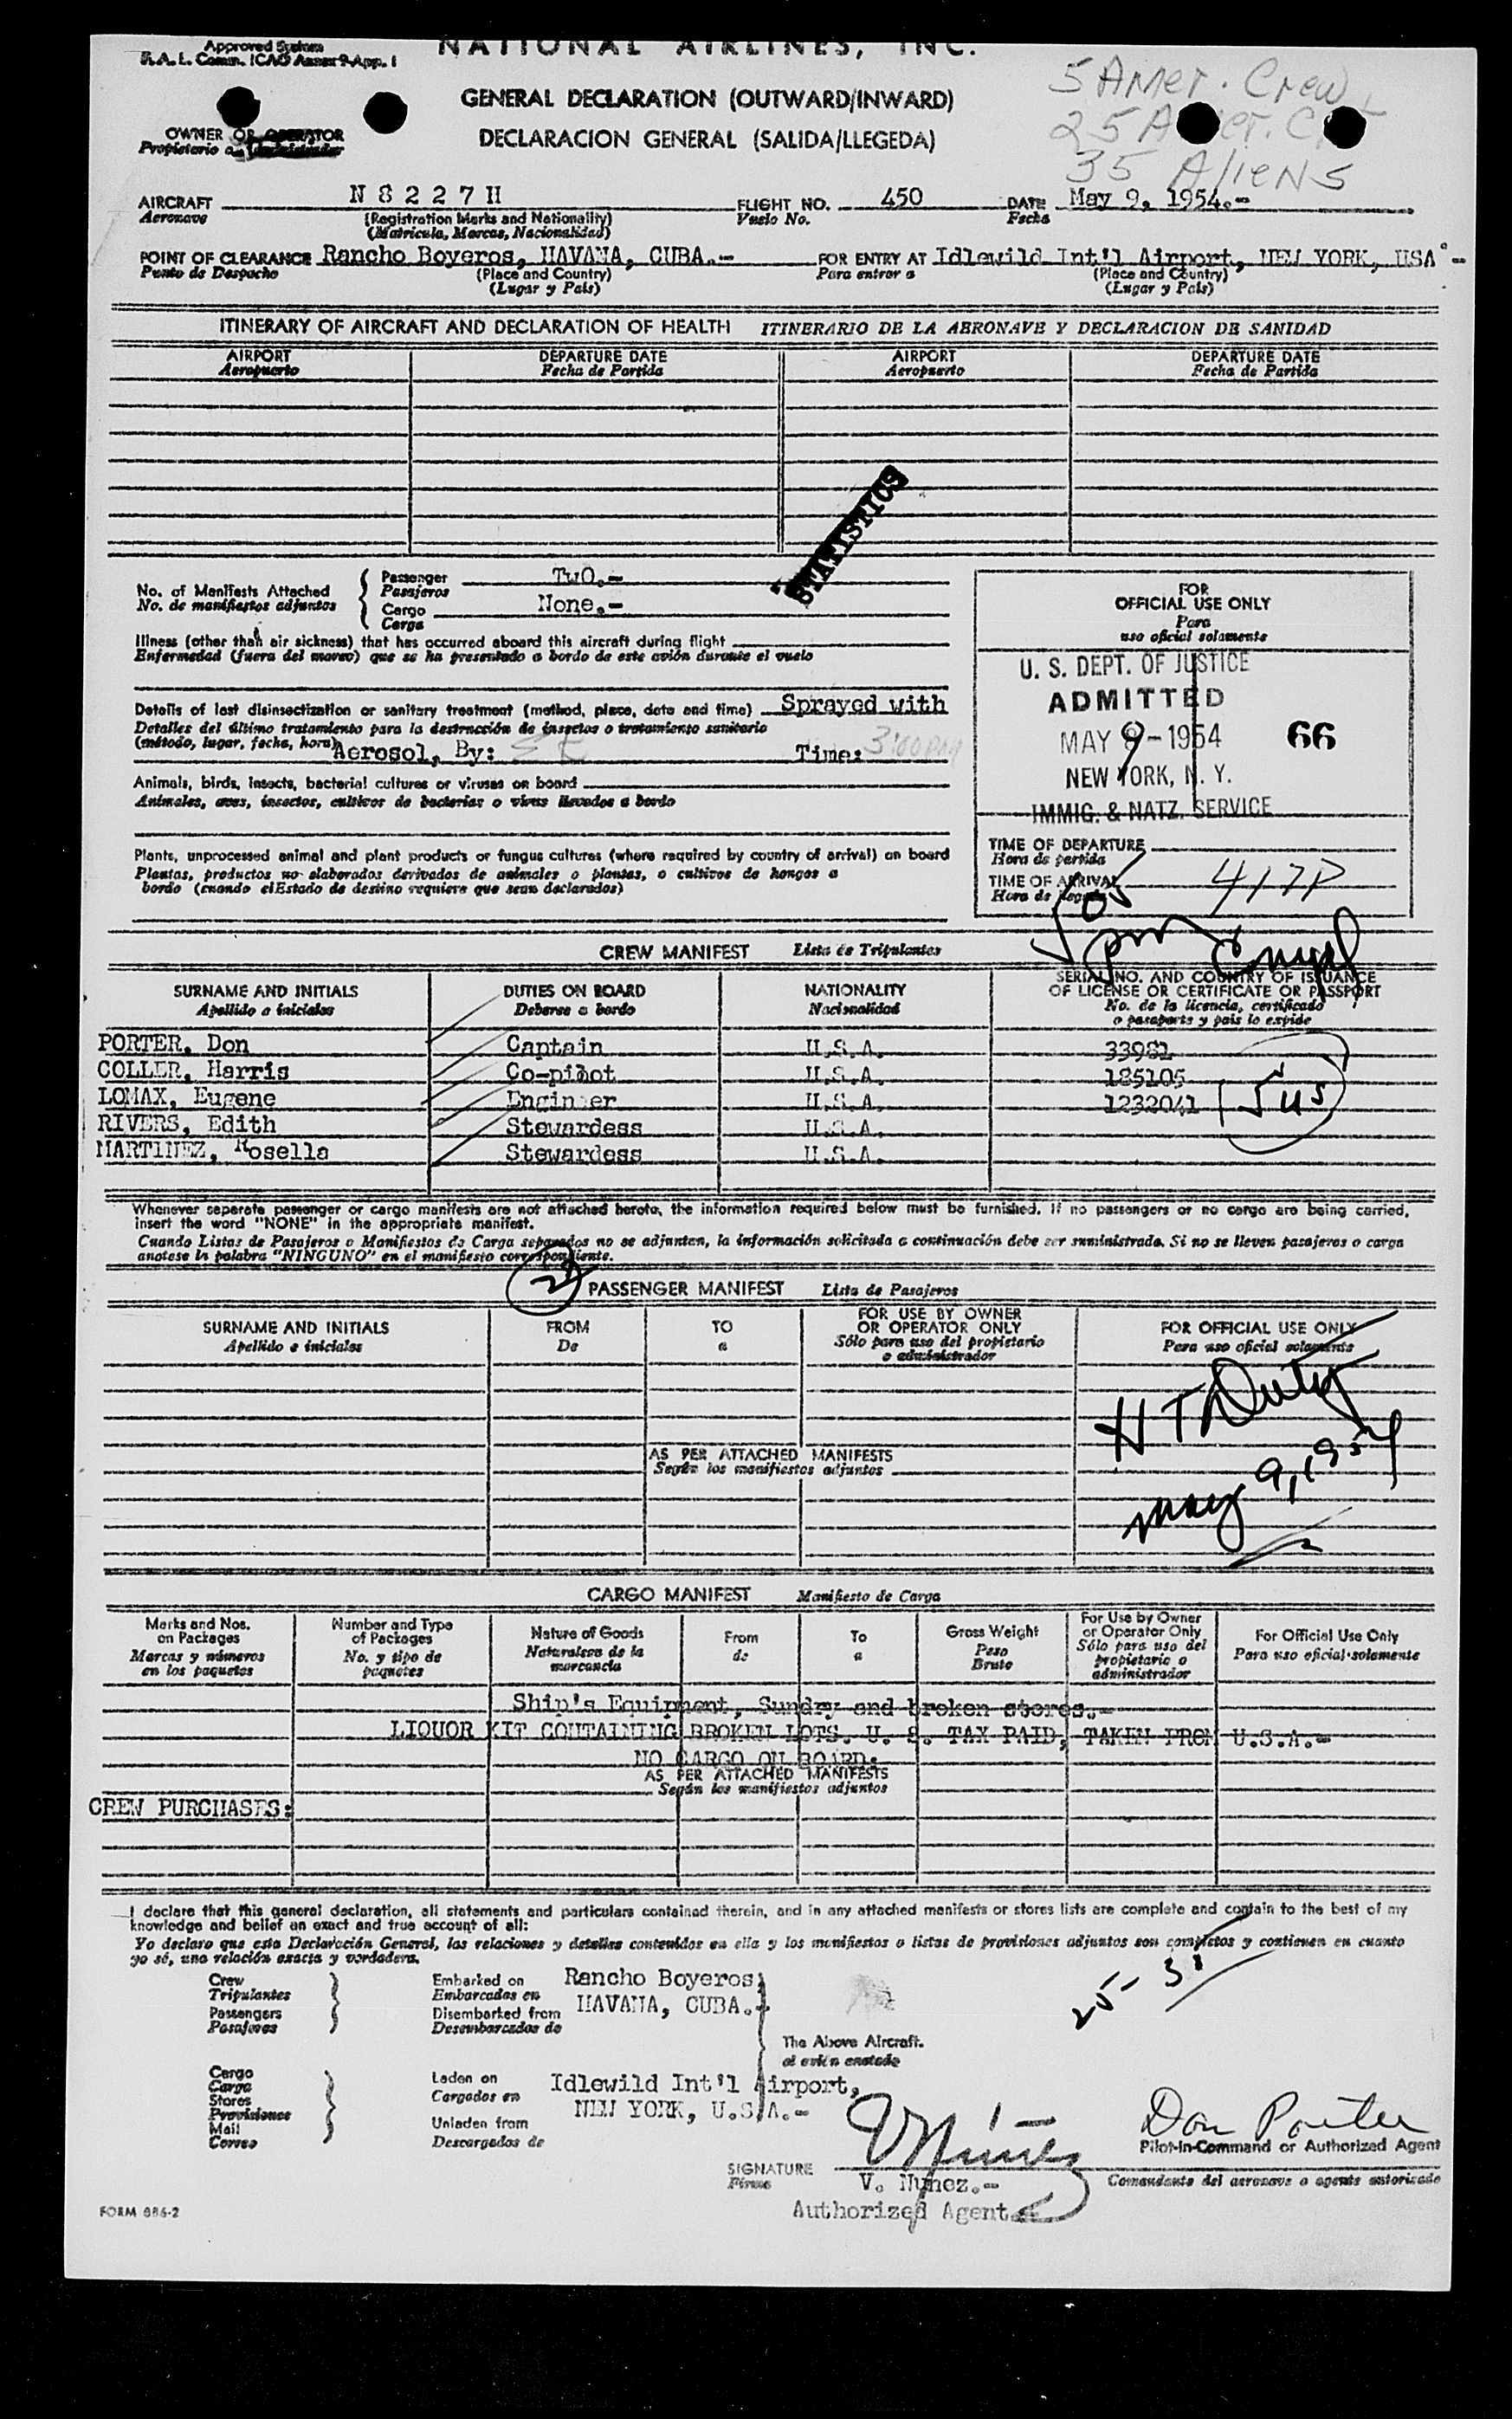 Approved System
NATIONAL AIRLINES, INC.
R.A.L. Comm. ICAO Annex 9-App. 1
5 Amer. Crew
GENERAL DECLARATION (OUTWARD/INWARD)
25
OWNER OR OPERATOR
Propietario o
DECLARACION GENERAL (SALIDA/LLEGEDA)
35 Aliens
AIRCRAFT N 8 2 2 7 H FLIGHT NO. 450 DATE May 9, 1954.-
Aeronave (Registration Marks and Nationality) Vuelo No. Fecha
(Matricula, Marcas, Nacionalidad)
POINT OF CLEARANCE Rancho Boyeros, HAVANA, CUBA.- FOR ENTRY AT Idlewild Int'l Airport, NEW YORK, USA -
Punto de Despacho (Place and Country) Para entrar a (Place and Country)
(Lugar y Pais) (Lugar y Pais)
ITINERARY OF AIRCRAFT AND DECLARATION OF HEALTH ITINERARIO DE LA AERONAVE Y DECLARACION DE SANIDAD
AIRPORT DEPARTURE DATE AIRPORT DEPARTURE DATE
Aeropuerto Fecha de Partida Aeropuerto Fecha de Partida
STATISTICS
No. of Manifests Attached Passenger Two.-
No. de manifiestos adjuntos Pasajeros
Cargo None.-
Carga
FOR
OFFICIAL USE ONLY
Para
uso oficial solamente
Illness (other than air sickness) that has occurred aboard this aircraft during flight
Enfermedad (fuera del mareo) que se ha presentado a bordo de este avión durante el vuelo
U. S. DEPT. OF JUSTICE
ADMITTED
MAY 9 - 1954 66
NEW YORK, N. Y.
IMMIG. & NATZ. SERVICE
Details of last disinsectization or sanitary treatment (method, place, date and time) Sprayed with
Detalles del último tratamiento para la destrucción de insectos o tratamiento sanitario
(método, lugar, fecha, hora) Aerosol, By: Time: 3:00 PM
Animals, birds, insects, bacterial cultures or viruses on board
Animales, aves, insectos, cultivos de bacterias o virus llevados a bordo
Plants, unprocessed animal and plant products or fungus cultures (where required by country of arrival) on board
Plantas, productos no elaborados derivados de animales o plantas, o cultivos de hongos a
bordo (cuando elEstado de destino requiera que sean declarados)
TIME OF DEPARTURE
Hora de partida
TIME OF ARRIVAL 417P
Hora de
CREW MANIFEST Lista de Tripulantes
SURNAME AND INITIALS DUTIES ON BOARD NATIONALITY SERIAL NO. AND COUNTRY OF ISSUANCE
OF LICENSE OR CERTIFICATE OR PASSPORT
Apellido e iniciales Deberes a bordo Nacionalidad No. de la licencia, certificado
o pasaporte y pais lo expide
PORTER, Don Captain U.S.A. 33981
COLLER, Harris Co-pilot U.S.A. 185105
LOMAX, Eugene Engineer U.S.A. 1232041 5 US
RIVERS, Edith Stewardess U.S.A.
MARTINEZ, Rosella Stewardess U.S.A.
Whenever separate passenger or cargo manifests are not attached hereto, the information required below must be furnished. If no passengers or no cargo are being carried,
insert the word "NONE" in the appropriate manifest.
Cuando Listas de Pasajeros o Manifiestos de Carga separados no se adjuntan, la información solicitada a continuación debe ser suministrada. Si no se lleven pasajeros o carga
anotese la palabra "NINGUNO" en el manifiesto correspondiente.
PASSENGER MANIFEST Lista de Pasajeros
SURNAME AND INITIALS FROM TO FOR USE BY OWNER
OR OPERATOR ONLY FOR OFFICIAL USE ONLY
Apellido e iniciales De a Sólo para uso del propietario
o administrador Para uso oficial solamente
AS PER ATTACHED MANIFESTS
Según los manifiestos adjuntos
May 9, 1954
CARGO MANIFEST Manifiesto de Carga
Marks and Nos.
on Packages
Marcas y números
en los paquetes
Number and Type
of Packages
No. y tipo de
paquetes
Nature of Goods
Naturaleza de la
mercancia
From
de
To
a
Gross Weight
Peso
Bruto
For Use by Owner
or Operator Only
Sólo para uso del
propietario o
administrador
For Official Use Only
Para uso oficial solamente
Ship's Equipment, Sundry and broken stores.-
LIQUOR KIT CONTAINING BROKEN LOTS. U. S. TAX PAID, TAKEN FROM U.S.A.-
NO CARGO ON BOARD.
AS PER ATTACHED MANIFESTS
Según los manifiestos adjuntos
CREW PURCHASES:
I declare that this general declaration, all statements and particulars contained therein, and in any attached manifests or stores lists are complete and contain to the best of my
knowledge and belief an exact and true account of all:
Yo declaro que esta Declaración General, las relaciones y detalles contenidos en ella y los manifiestos o listas de provisiones adjuntos son completos y contienen en cuanto
yo sé, una relación exacta y verdadera.
Crew
Tripulantes
Passengers
Pasajeros
Embarked on Rancho Boyeros,
Embarcados en
Disembarked from HAVANA, CUBA.-
Desembarcados de
25-35
The Above Aircraft.
al avión anotado
Cargo
Carga
Stores
Provisiones
Mail
Correo
Laden on Idlewild Int'l Airport,
Cargados en NEW YORK, U.S.A.-
Unladen from
Descargados de
Don Porter
Pilot-in-Command or Authorized Agent
SIGNATURE V Núñez
Firma V. Nuñez.- Comandante del aeronave o agente autorizado
Authorized Agent.
FORM 886-2